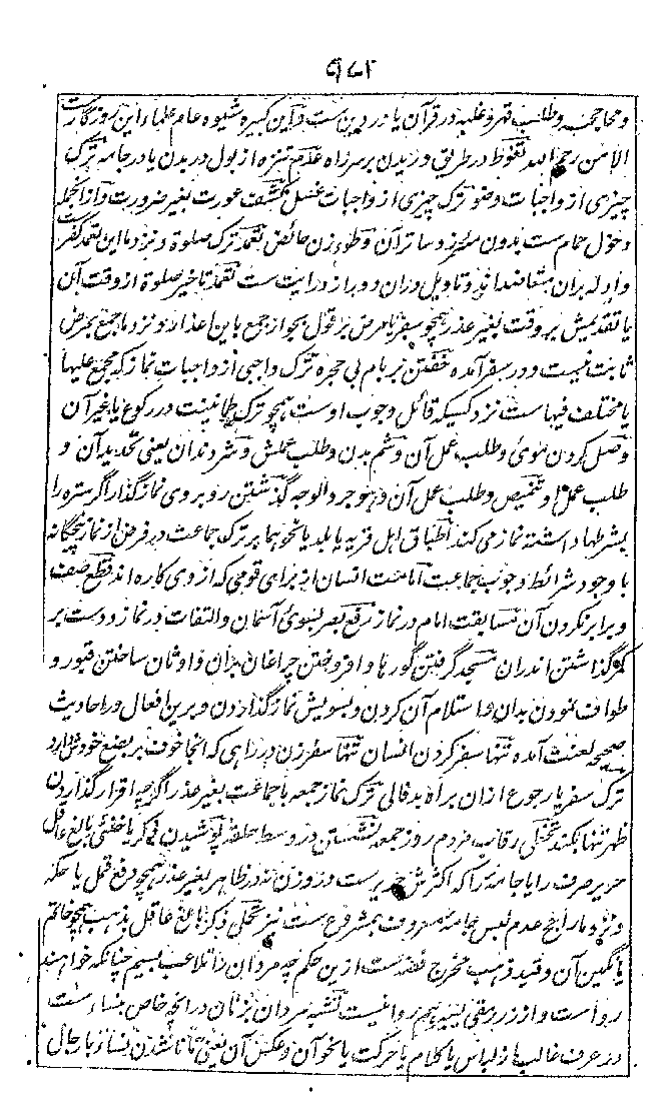 ۹۶۲
ومحاجه وطلب قهر وغلبه در قرآن یا در دین ست واین کبیره شیوه عام علماء این روزگارست
الا من رحم الله تغوط در طریق ورزیدن بر سر راه عدم تنزه از بول در بدن یا در جامه ترک
چیزی از واجبات وضو ترک چیزی از واجبات غسل کشف عورت بغیر ضرورت وازانجمله
دخول حمام ست بدون مئزر وساتر آن وطوء زن حائض تعمد ترک صلوة ونزد ما این تعمد کفرست
وادله بران متعاضد اند وتاویل دران دور از درایت ست تعمد تاخیر صلوة از وقت آن
یا تقدیمش بر وقت بغیر عذر همچو سفر یا مرض بر قول بجواز جمع باین اعذار ونزد ما جمع بمرض
ثابت نیست ودر سفر آمده خفتن بر بام بی حجره ترک واجبی از واجبات نماز که مجمع علیها
یا مختلف فیهاست نزد کسیکه قائل وجوب اوست همچو ترک طمانینت در رکوع یا غیر آن
وصل کردن موی وطلب عمل آن وشم بدن وطلب عملش وشر دندان یعنی تحدید آن و
طلب عمل او تنمیص وطلب عمل آن وهو جرد الوجه گذشتن رو بروی نمازگذار اگر ستره را
بشرطها داشته نماز می کند اطباق اهل قریه یا بلد یا نحو هما بر ترک جماعت در فرض از نماز پنجگانه
با وجود شرائط وجوب جماعت امامت انسان از برای قومی که از وی کاره اند قطع صف
وبرابر نکردن آن مسابقت امام در نماز رفع بصر بسوی آسمان والتفات در نماز ودست بر
کمر گذاشتن اندران مسجد گرفتن گورها وافروختن چراغان بران واوثان ساختن قبور و
طواف نمودن بدان ها واستلام آن کردن وبسویش نماز گذاردن وبرین افعال در احادیث
صحیحه لعنت آمده تنها سفر کردن انسان تنها سفر زن در راهی که آنجا خوف بر بضع خود دارد
ترک سفر یا رجوع ازان براه بدفالی ترک نماز جمعه با جماعت بغیر عذر اگرچه اقرار گذاردن
ظهر تنها بکند تخطی رقاب مردم روز جمعه نشستن در وسط حلقه پوشیدن ذکر یا خنثی بالغ عاقل
حریر صرف را یا جامه را که اکثرش حریرست در وزن نه در ظاهر بغیر عذر همچو دفع قمل یا حکه
ونزد ما راجح عدم لبس جامه مشروع ست نیز تحلی ذکر بالغ عاقل بذهب همچو خاتم
یا نگین آن وقید ذهب مخرج فضه ست ازین حکم چه مردان را تلاعب بسیم چنانکه خواهند
رواست واز زر بقی لبسه هم روا نیست تشبه مردان بزنان در انچه خاص بنساء ست
در عرف غالبا از لباس یا کلام یا حرکت یا نحو آن وعکس آن یعنی مانا شدن نساء با رجال